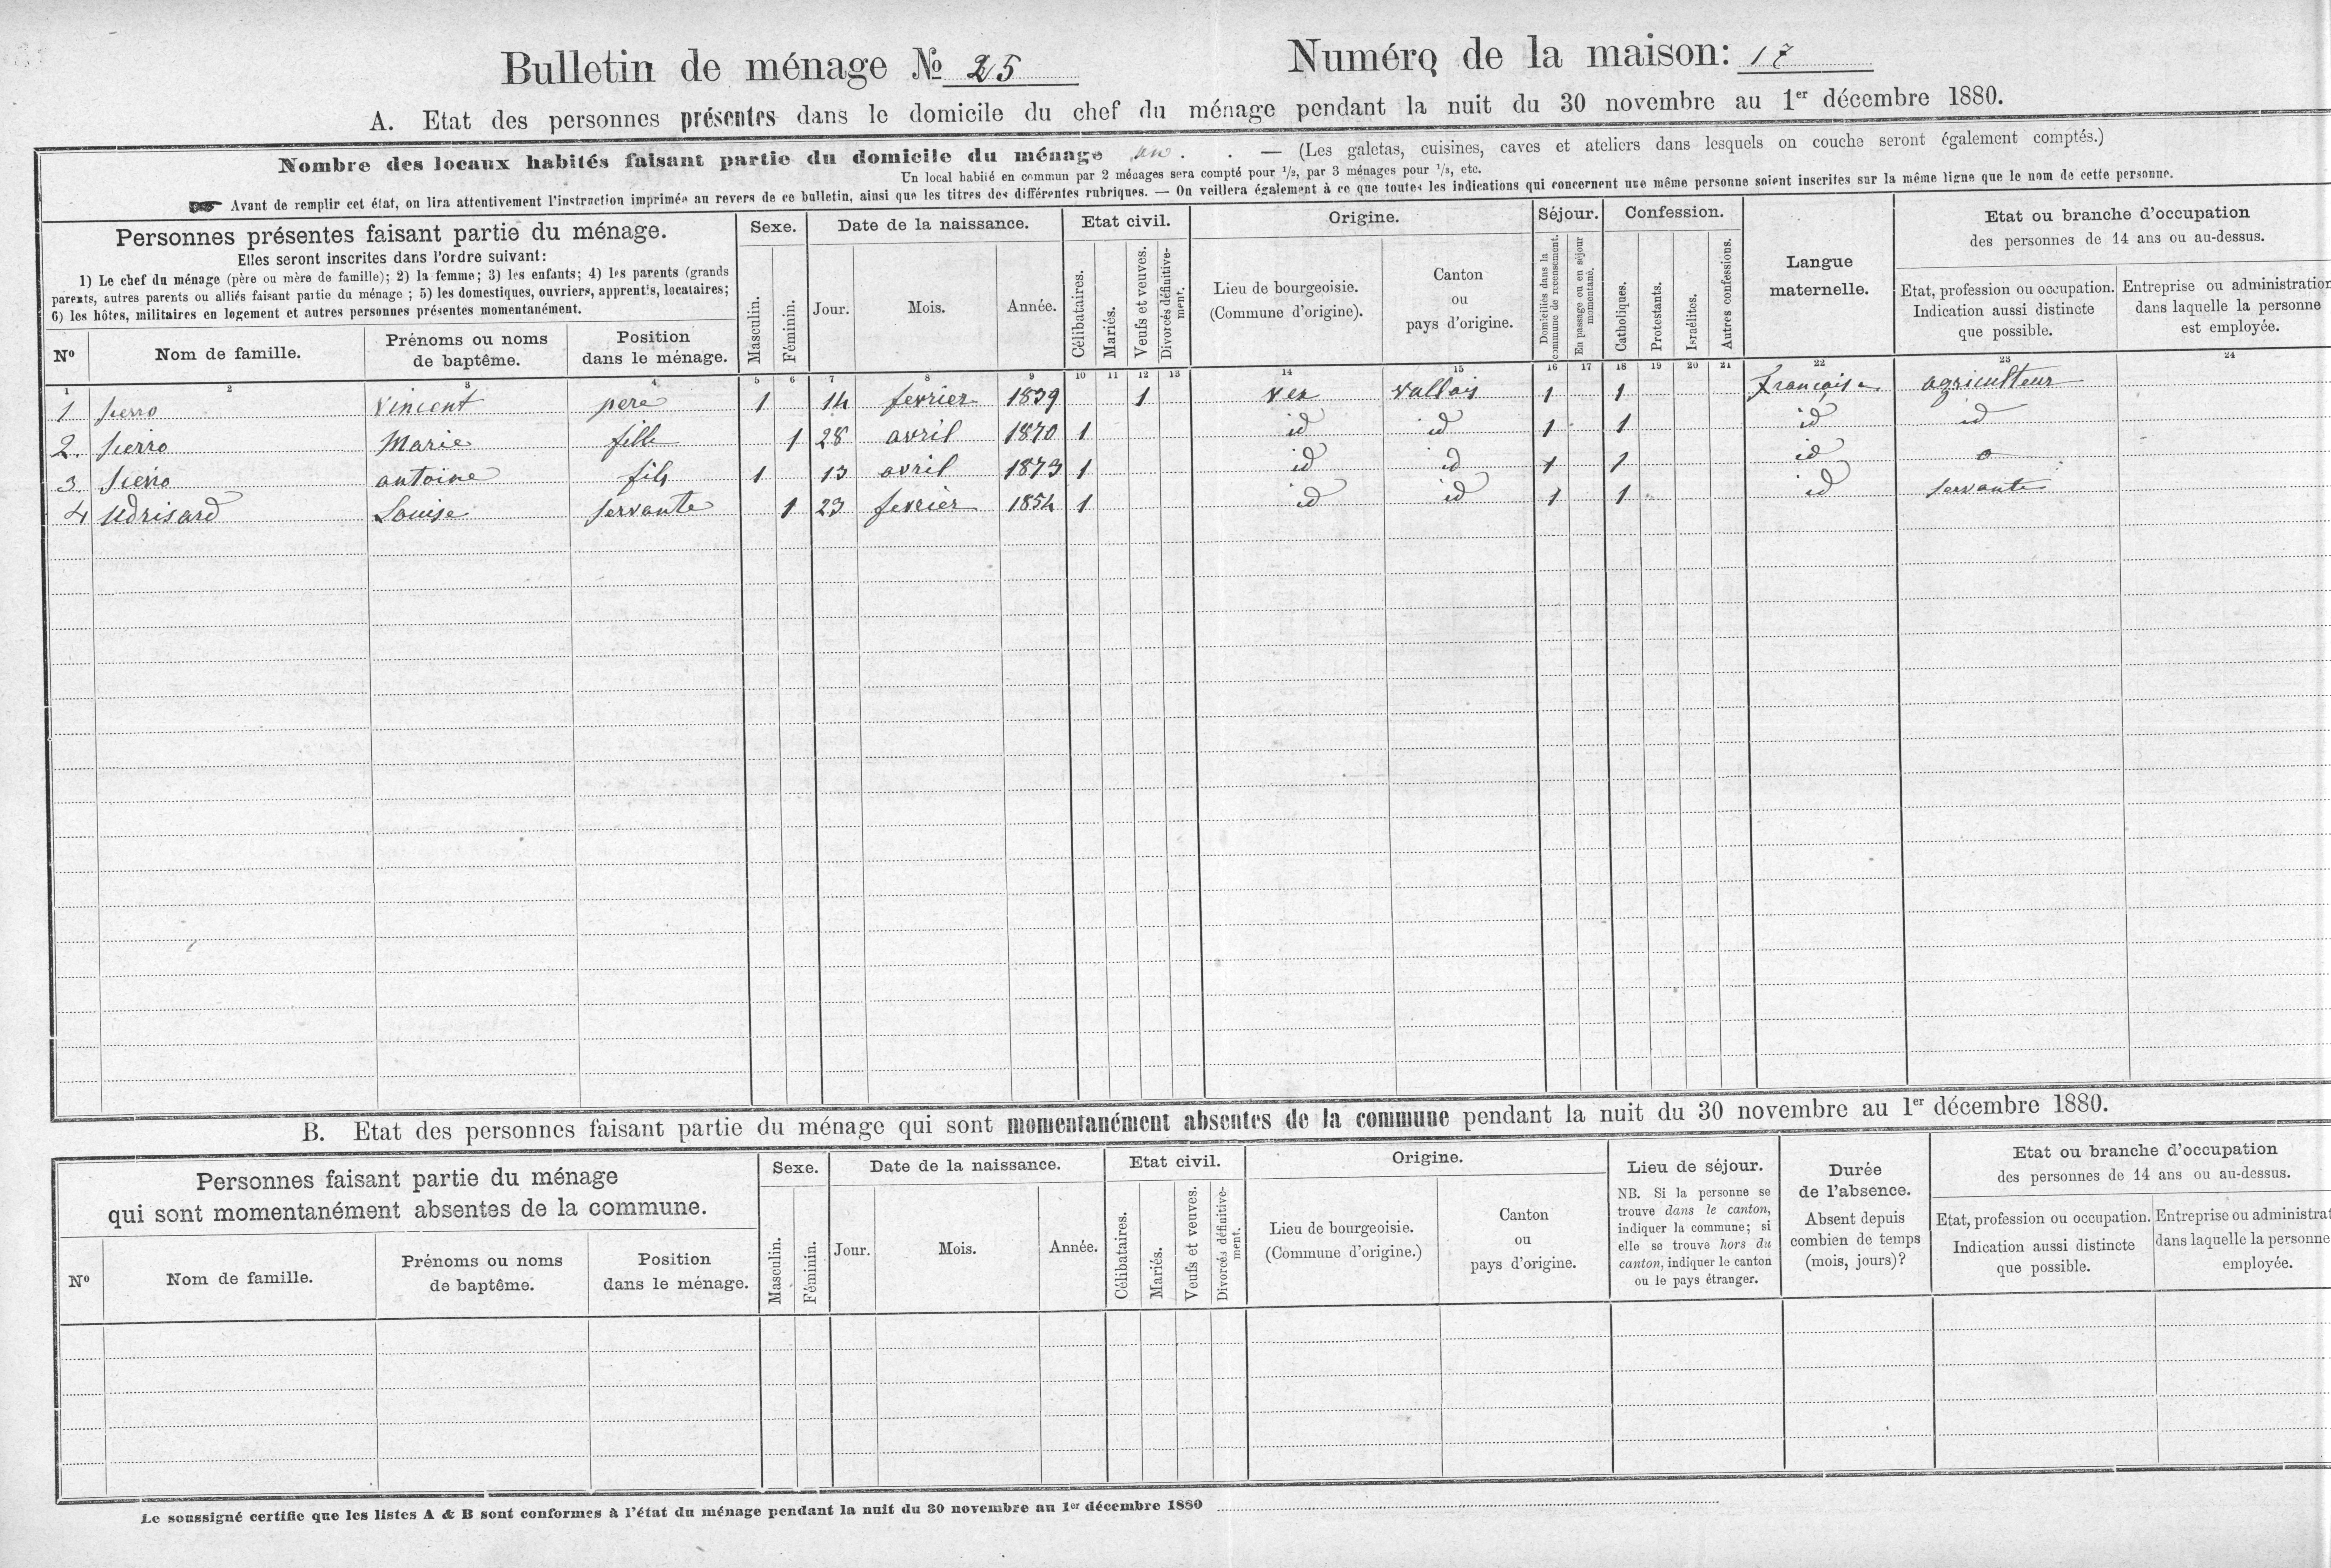 Bulletin de ménage № 25 Numéro de la maison: 17
A. Etat des personnes présentes dans le domicile du chef du ménage pendant la nuit du 30 novembre au 1er décembre 1880.
Nombre des locaux habités faisant partie du domicile du ménage un . . — (Les galetas, cuisines, caves et ateliers dans lesquels on couche seront également comptés.)
Un local habité en commun par 2 ménages sera compté pour 1/2, par 3 ménages pour 1/3, etc.
Avant de remplir cet état, on lira attentivement l'instruction imprimée au revers de ce bulletin, ainsi que les titres des différentes rubriques. — On veillera également à ce que toutes les indications qui concernent une même personne soient inscrites sur la même ligne que le nom de cette personne.
Personnes présentes faisant partie du ménage.
Elles seront inscrites dans l'ordre suivant:
1) Le chef du ménage (père ou mère de famille); 2) la femme; 3) les enfants; 4) les parents (grands
parents, autres parents ou alliés faisant partie du ménage ; 5) les domestiques, ouvriers, apprentis, locataires;
6) les hôtes, militaires en logement et autres personnes présentes momentanément.
N° Nom de famille. Prénoms ou noms de baptême. Position dans le ménage.
Sexe. Masculin. Féminin.
Date de la naissance. Jour. Mois. Année.
Etat civil. Célibataires. Mariés. Veufs et veuves. Divorcés définitivement.
Origine. Lieu de bourgeoisie. (Commune d'origine). Canton ou pays d'origine.
Séjour. Domiciliés dans la commune de recensement. En passage ou en séjour momentané.
Confession. Catholiques. Protestants. Israélites. Autres confessions.
Langue maternelle.
Etat ou branche d'occupation
des personnes de 14 ans ou au-dessus.
Etat, profession ou occupation. Indication aussi distincte que possible.
Entreprise ou administration dans laquelle la personne est employée.
1 2 3 4 5 6 7 8 9 10 11 12 13 14 15 16 17 18 19 20 21 22 23 24
1 sierro vincent pere 1 14 fevrier 1839 1 vex vallais 1 1 francaise agriculteur
2. sierro Marie fille 1 28 avril 1870 1 id id 1 1 id id
3. sierro antoine fils 1 13 avril 1873 1 id id 1 1 id o
4 udrisard Louise servante 1 23 fevrier 1854 1 id id 1 1 id servante
B. Etat des personnes faisant partie du ménage qui sont momentanément absentes de la commune pendant la nuit du 30 novembre au 1er décembre 1880.
Personnes faisant partie du ménage
qui sont momentanément absentes de la commune.
N° Nom de famille. Prénoms ou noms de baptême. Position dans le ménage.
Sexe. Masculin. Féminin.
Date de la naissance. Jour. Mois. Année.
Etat civil. Célibataires. Mariés. Veufs et veuves. Divorcés définitivement.
Origine. Lieu de bourgeoisie. (Commune d'origine.) Canton ou pays d'origine.
Lieu de séjour.
NB. Si la personne se
trouve dans le canton,
indiquer la commune; si
elle se trouve hors du
canton, indiquer le canton
ou le pays étranger.
Durée
de l'absence.
Absent depuis
combien de temps
(mois, jours)?
Etat ou branche d'occupation
des personnes de 14 ans ou au-dessus.
Etat, profession ou occupation. Indication aussi distincte que possible.
Entreprise ou administrat dans laquelle la personne employée.
Le soussigné certifie que les listes A & B sont conformes à l'état du ménage pendant la nuit du 30 novembre au 1er décembre 1880